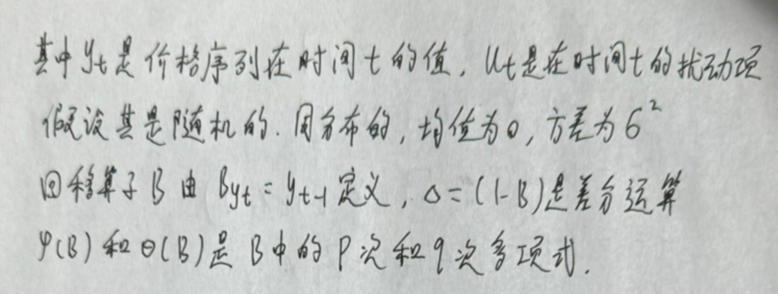 其中 yt 是价格序列在时间 t 的值, ut 是在时间 t 的扰动项
假设其是随机的. 同分布的, 均值为 0, 方差为 6²
回移算子 B 由 Byt = yt-1 定义, △ = (1-B) 是差分运算
φ(B) 和 θ(B) 是 B 中的 P 次和 q 次多项式.